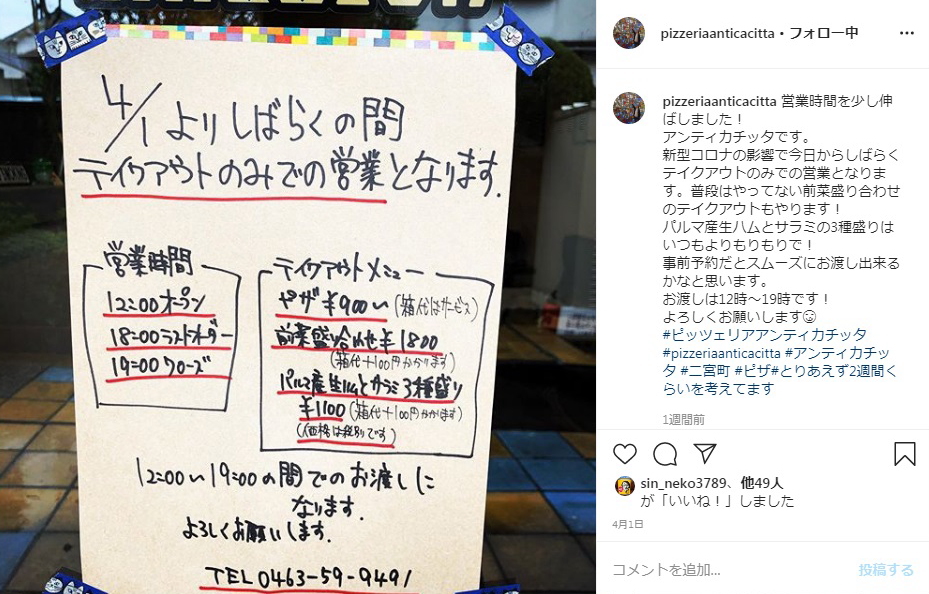 4/1よりしばらくの間
テイクアウトのみでの営業となります.
営業時間
12:00オープン
18:00ラストオーダー
19:00クローズ
テイクアウトメニュー
ピザ ¥900〜(箱代はサービス)
前菜盛り合わせ¥1800
(箱代+100円かかります)
パルマ産生ハムとサラミ3種盛り
¥1100(箱代+100円かかります)
(価格は税別です)
12:00〜19:00の間でのお渡しに
なります.
よろしくお願いします.
TEL 0463-59-9491
pizzeriaanticacitta・フォロー中
pizzeriaanticacitta 営業時間を少し伸
ばしました！
アンティカチッタです。
新型コロナの影響で今日からしばらく
テイクアウトのみでの営業となりま
す。普段はやってない前菜盛り合わせ
のテイクアウトもやります！
パルマ産生ハムとサラミの3種盛りは
いつもよりもりもりで！
事前予約だとスムーズにお渡し出来る
かなと思います。
お渡しは12時〜19時です！
よろしくお願いします😉
#ピッツェリアアンティカチッタ
#pizzeriaanticacitta #アンティカチッ
タ #二宮町 #ピザ#とりあえず2週間く
らいを考えてます
1週間前
sin_neko3789、他49人
が「いいね！」しました
4月1日
コメントを追加...
投稿する